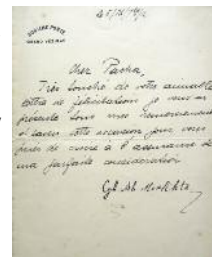 SUBLIME PORTE
GRAND VEZIRAT
Cher Pacha,
Très touché de votre aimable
lettre de félicitations je vous en
présente tous mes remerciements
et saisis cette occasion pour vous
prier de croire à l'assurance de
ma parfaite considération